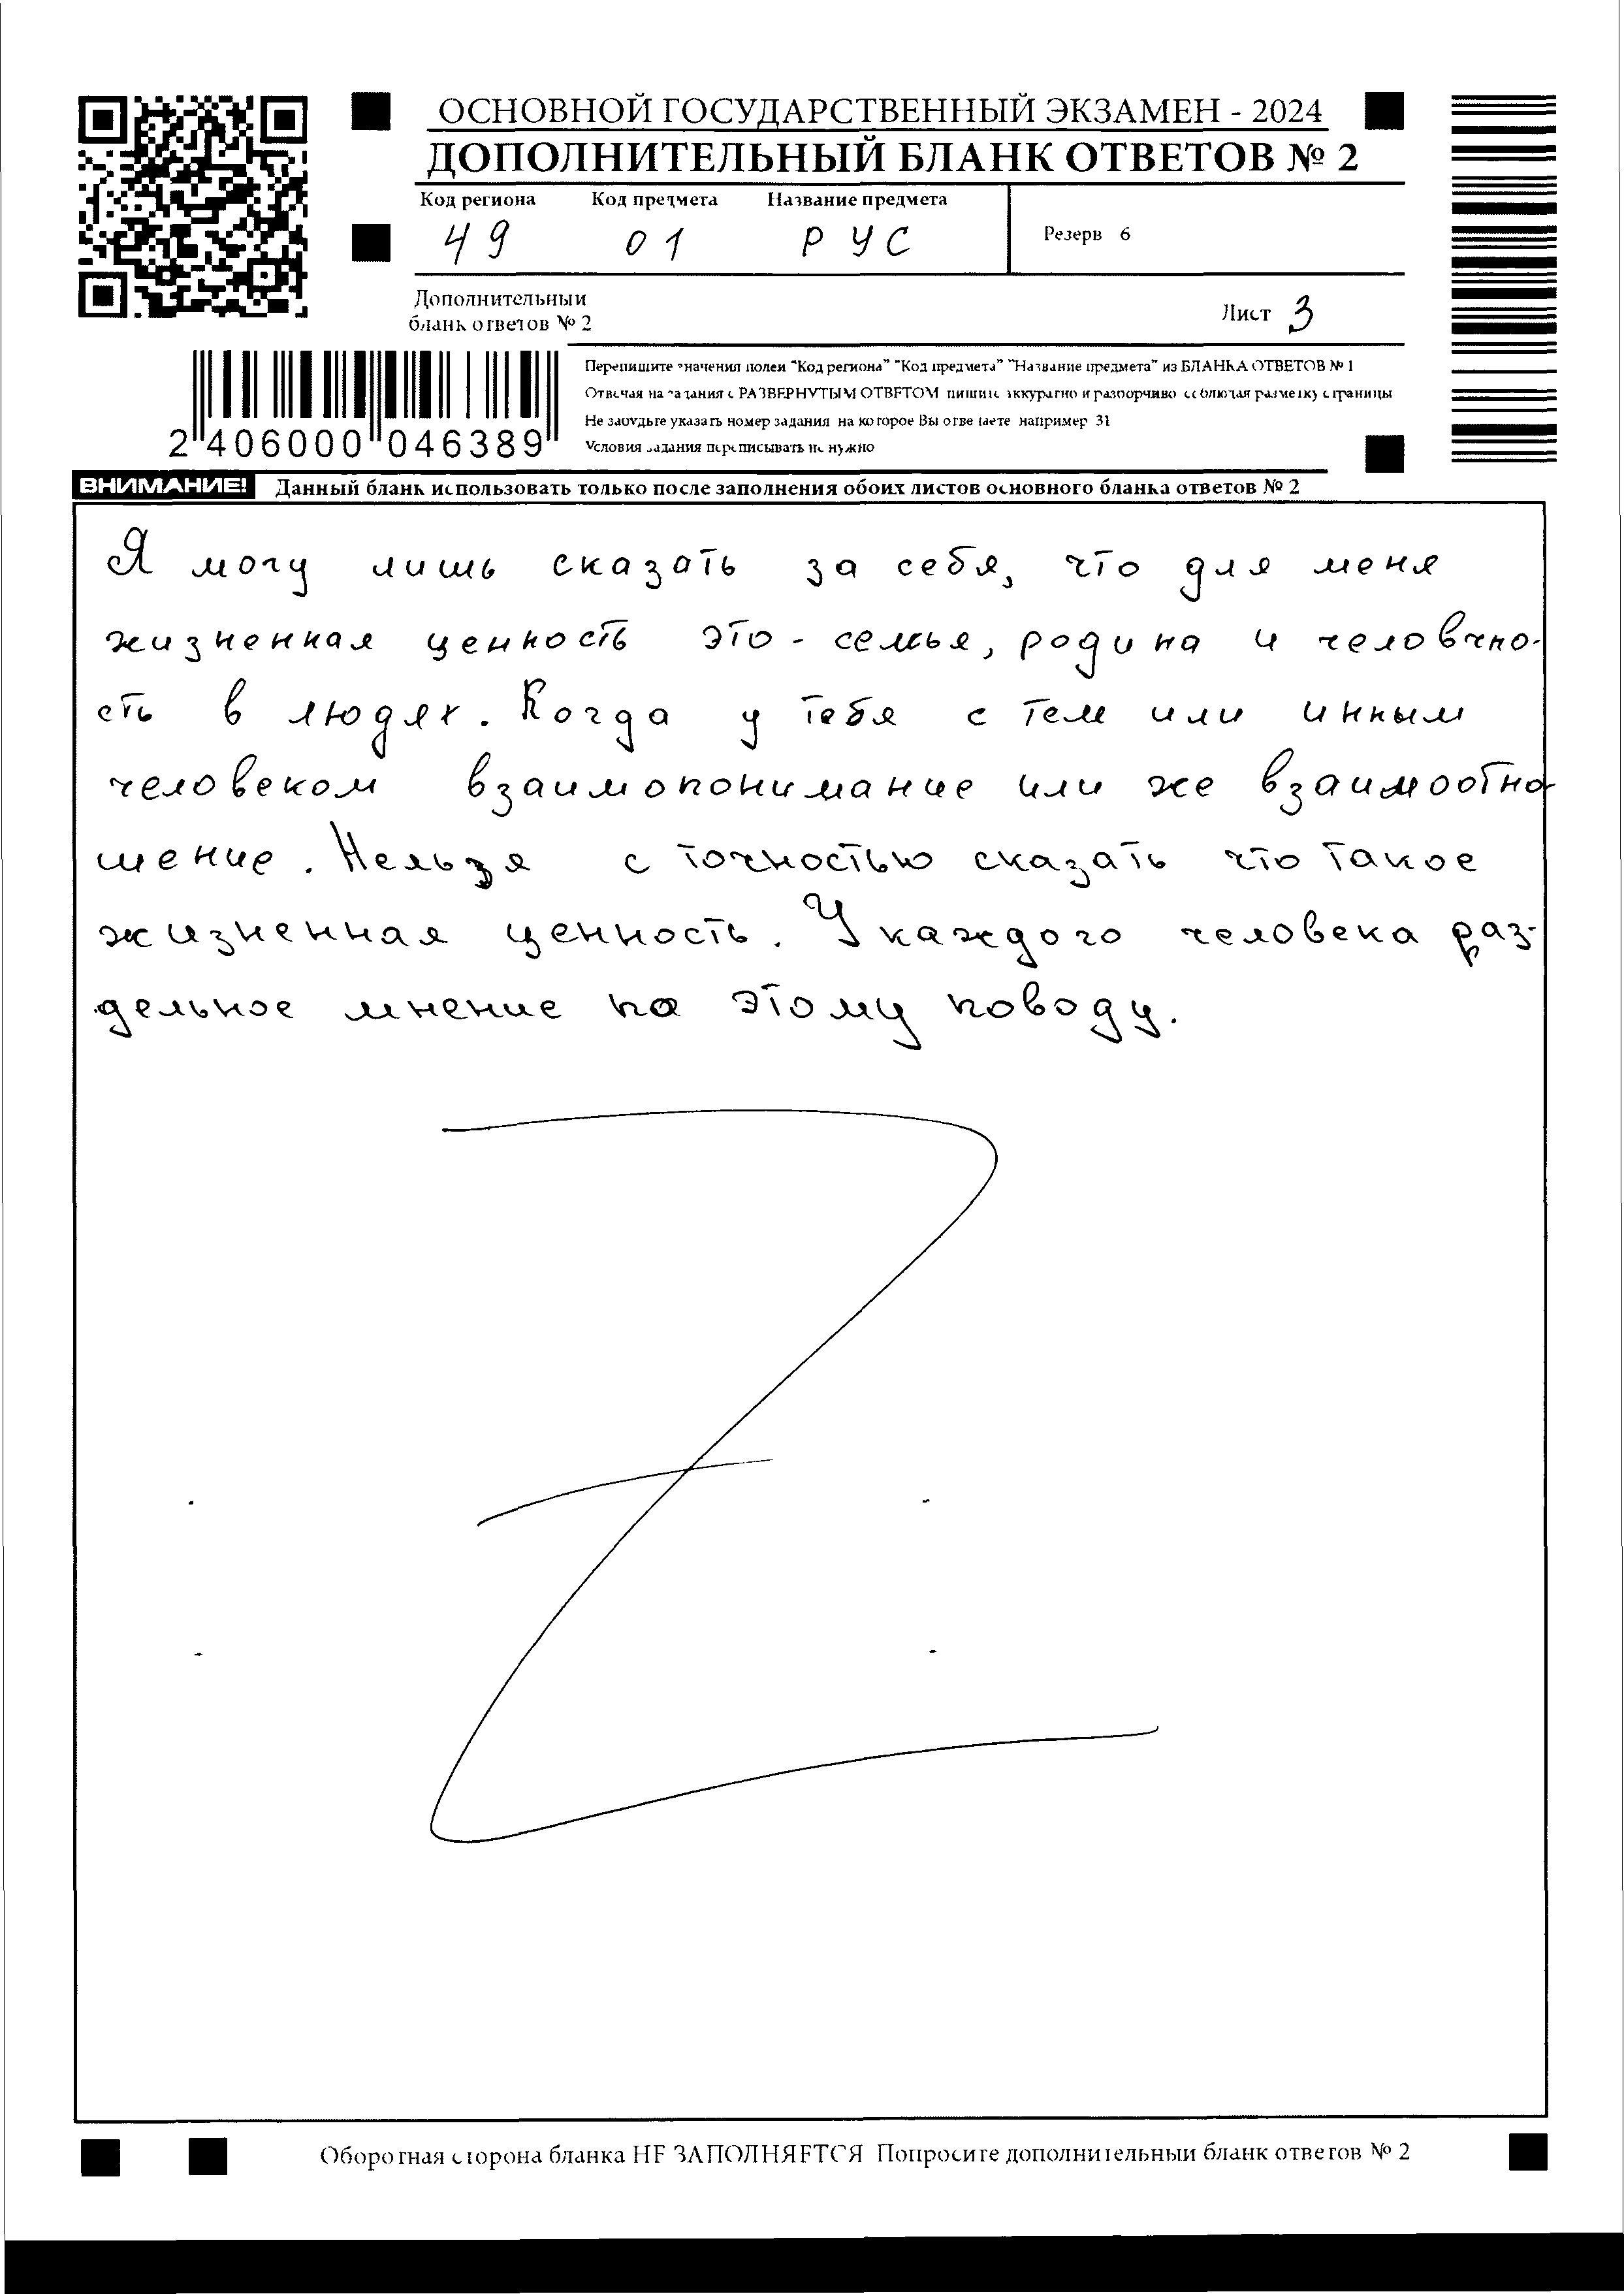 ОСНОВНОЙ ГОСУДАРСТВЕННЫЙ ЭКЗАМЕН - 2024
ДОПОЛНИТЕЛЬНЫЙ БЛАНК ОТВЕТОВ № 2
Код региона Код предмета Название предмета
49 01 РУС
Резерв 6
Дополнительный
бланк ответов № 2
Лист 3
2 406000 046389
Перепишите значения полей "Код региона" "Код предмета" "Название предмета" из БЛАНКА ОТВЕТОВ № 1
Отвечая на задания с РАЗВЕРНУТЫМ ОТВЕТОМ пишите аккуратно и разборчиво соблюдая разметку страницы
Не забудьте указать номер задания на которое Вы отвечаете например 31
Условия задания переписывать не нужно
ВНИМАНИЕ! Данный бланк использовать только после заполнения обоих листов основного бланка ответов № 2
Я могу лишь сказать за себя, что для меня
жизненная ценность это - семья, родина и человчно-
сть в людях. Когда у тебя с тем или инным
человеком взаимопонимание или же взаимоотно-
шение. Нельзя с точностью сказать что такое
жизненная ценность. У каждого человека раз-
дельное мнение по этому поводу.
Оборотная сторона бланка НЕ ЗАПОЛНЯЕТСЯ Попросите дополнительный бланк ответов № 2